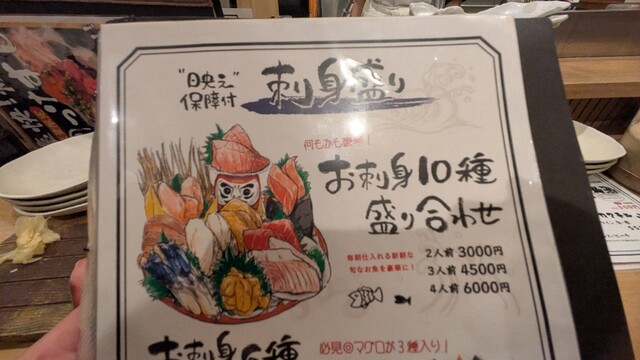 "映え"
保障付
刺身盛り
何もかも豪華!
お刺身10種
盛り合わせ
毎朝仕入れる新鮮な
旬なお魚を豪華に!
2人前 3000円
3人前 4500円
4人前 6000円
お刺身6種
必見◎マグロが3種入り!